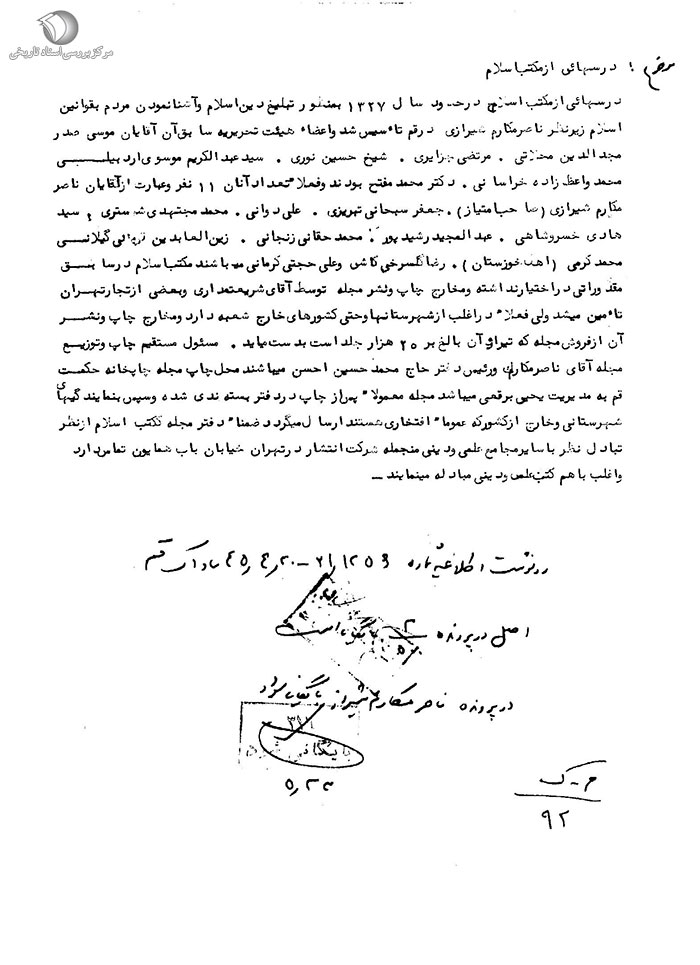 مرکز بررسی اسناد تاریخی
موضوع : درسهائی از مکتب اسلام
درسهائی از مکتب اسلام درحدود سال ۱۳۲۷ بمنظور تبلیغ دین اسلام وآشنا نمودن مردم بقوانین
اسلام زیرنظر ناصر مکارم شیرازی درقم تاءسیس شد واعضاء هیئت تحریریه سابق آن آقایان موسی صدر
مجدالدین محلاتی . مرتضی جزایری . شیخ حسین نوری . سید عبدالکریم موسوی اردبیلی
محمد واعظ زاده خراسانی . دکتر محمد مفتح بودند وفعلا" تعداد آنان ۱۱ نفر وعبارت ازآقایان ناصر
مکارم شیرازی (صاحب امتیاز) . جعفر سبحانی تبریزی . علی دوانی . محمد مجتهدی شبستری و سید
هادی خسروشاهی . عبدالمجید رشیدپور . محمد حقانی زنجانی . زین العابدین قربانی گیلانی
محمد کرمی (اهل خوزستان) . رضا گلسرخی کاشی وعلی حجتی کرمانی میباشند مکتب اسلام درسابق
مقدوراتی دراختیار نداشته ومخارج چاپ ونشر مجله توسط آقای شریعتمداری وبعضی ازتجار تهران
تاءمین میشد ولی فعلا" دراغلب ازشهرستانها وحتی کشورهای خارج شعبه دارد ومخارج چاپ ونشر
آن ازفروش مجله که تیراژ آن بالغ بر ۲۵ هزار جلد است بدست میاید . مسئول مستقیم چاپ وتوزیع
مجله آقای ناصر مکارم ورئیس دفتر حاج محمد حسین احسن میباشند محل چاپ مجله چاپخانه حکمت
قم به مدیریت یحیی برقعی میباشد مجله معمولا" پس از چاپ دردفتر بسته بندی شده وسپس بنمایندگیهای
شهرستانی وخارج ازکشور که عموما" افتخاری هستند ارسال میگردد ضمنا" دفتر مجله مکتب اسلام ازنظر
تبادل نظر با سایر مجامع علمی ودینی منجمله شرکت انتشار درتهران خیابان باب همایون تماس دارد
واغلب با هم کتب علمی ودینی مبادله مینمایند ــ
رونوشت اطلاعیه شماره ۲۱/۱۲۵۶ - ۴۵/۴/۲۰ ساواک قم
اصل در پرونده بایگانی است
در پرونده ناصر مکارم شیرازی بایگانی شود
بایگانی شد
۵/۲۳
م - ک
۹۲